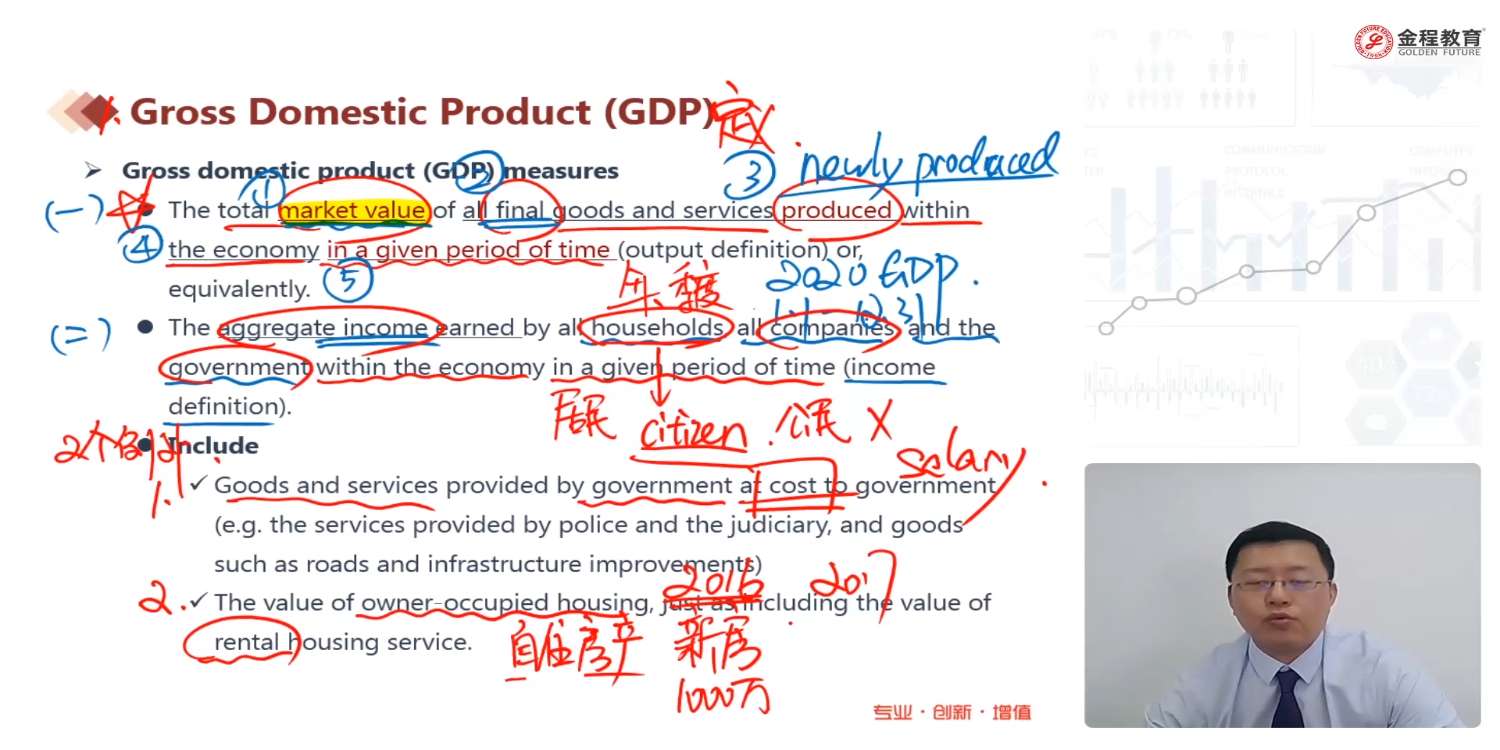 金程教育
GOLDEN FUTURE
1. Gross Domestic Product (GDP) 定义
Gross domestic product (GDP) measures
① ② ③ newly produced
(一) The total market value of all final goods and services produced within
④ the economy in a given period of time (output definition) or,
equivalently. ⑤
年. 季度 2020 GDP.
1.1 - 12.31
(二) The aggregate income earned by all households all companies and the
government within the economy in a given period of time (income
definition).
居民 citizen. 公民 X
2个例外.
Include
salary
1. Goods and services provided by government at cost to government.
(e.g. the services provided by police and the judiciary, and goods
such as roads and infrastructure improvements)
2016. 2017
2. The value of owner-occupied housing, just as including the value of
rental housing service.
自住房产 新房
1000万
专业·创新·增值